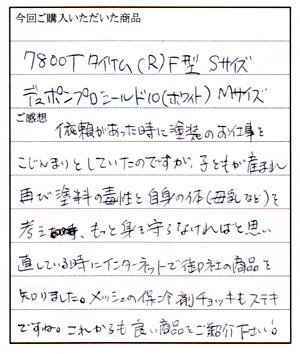 今回ご購入いただいた商品
7800Tタイテム(R)F型 Sサイズ
デュポンプロシールド10(ホワイト) Mサイズ
ご感想
依頼があった時に塗装のお仕事を
こじんまりとしていたのですが、子どもが産まれ
再び塗料の毒性と自身の体(母乳など)を
考え 時、もっと身を守らなければと思い
直している時にインターネットで御社の商品を
知りました。メッシュの保冷剤チョッキもステキ
ですね。これからも良い商品をご紹介下さい。